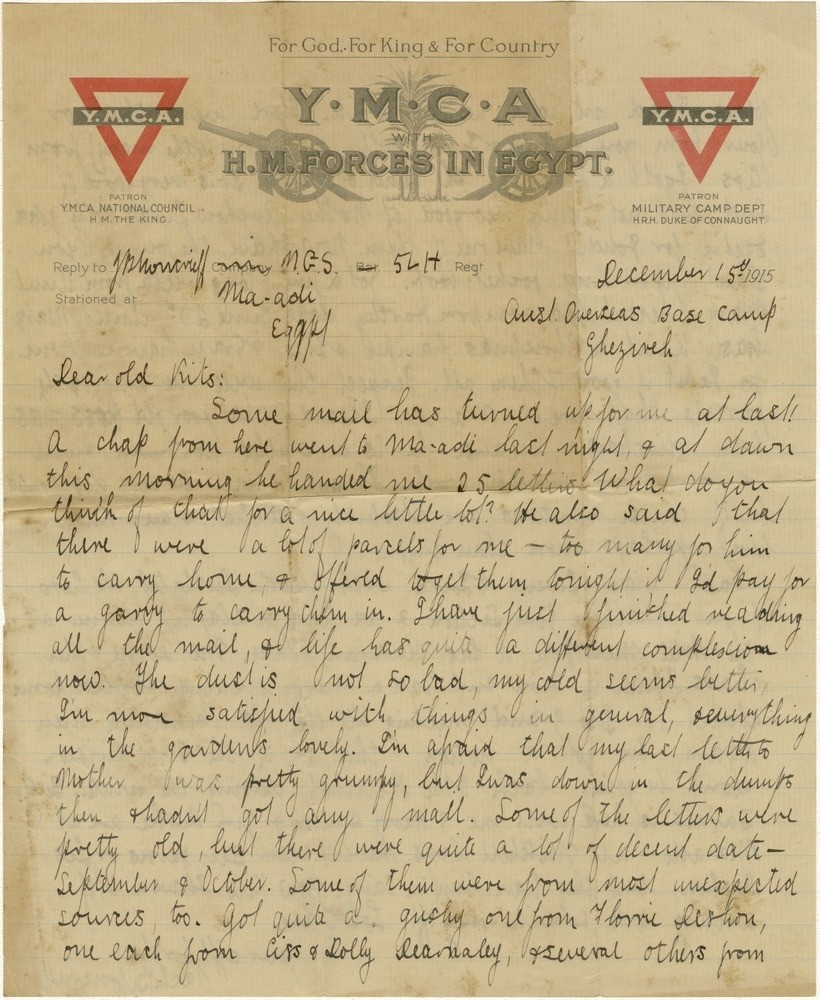 For God, For King & For Country
Y.M.C.A.
Y·M·C·A
WITH
H.M. FORCES IN EGYPT.
Y.M.C.A.
PATRON
Y.M.C.A. NATIONAL COUNCIL
H.M. THE KING.
PATRON
MILITARY CAMP DEPT
H.R.H. DUKE OF CONNAUGHT.
Reply to J B Moncrieff M.G.S. 5 L H Regt
Stationed at Ma-adi
Egypt
December 15th 1915
Aust. Overseas Base Camp
Ghezireh
Dear old Kits:
Some mail has turned up for me at last!
A chap from here went to Ma-adi last night, & at dawn
this morning he handed me 25 letters. What do you
think of that for a nice little lot? He also said that
there were a lot of parcels for me — too many for him
to carry home, & offered to get them tonight if I'd pay for
a garry to carry them in. I have just finished reading
all the mail, & life has quite a different complexion
now. The dust is not so bad, my cold seems better,
I'm more satisfied with things in general, & everything
in the gardens lovely. I'm afraid that my last letter to
Mother was pretty grumpy, but I was down in the dumps
then & hadn't got any mail. Some of the letters were
pretty old, but there were quite a lot of decent date —
September & October. Some of them were from most unexpected
sources, too. Got quite a gushy one from Florrie Deshon,
one each from Ciss & Dolly Dearnaley, & several others from